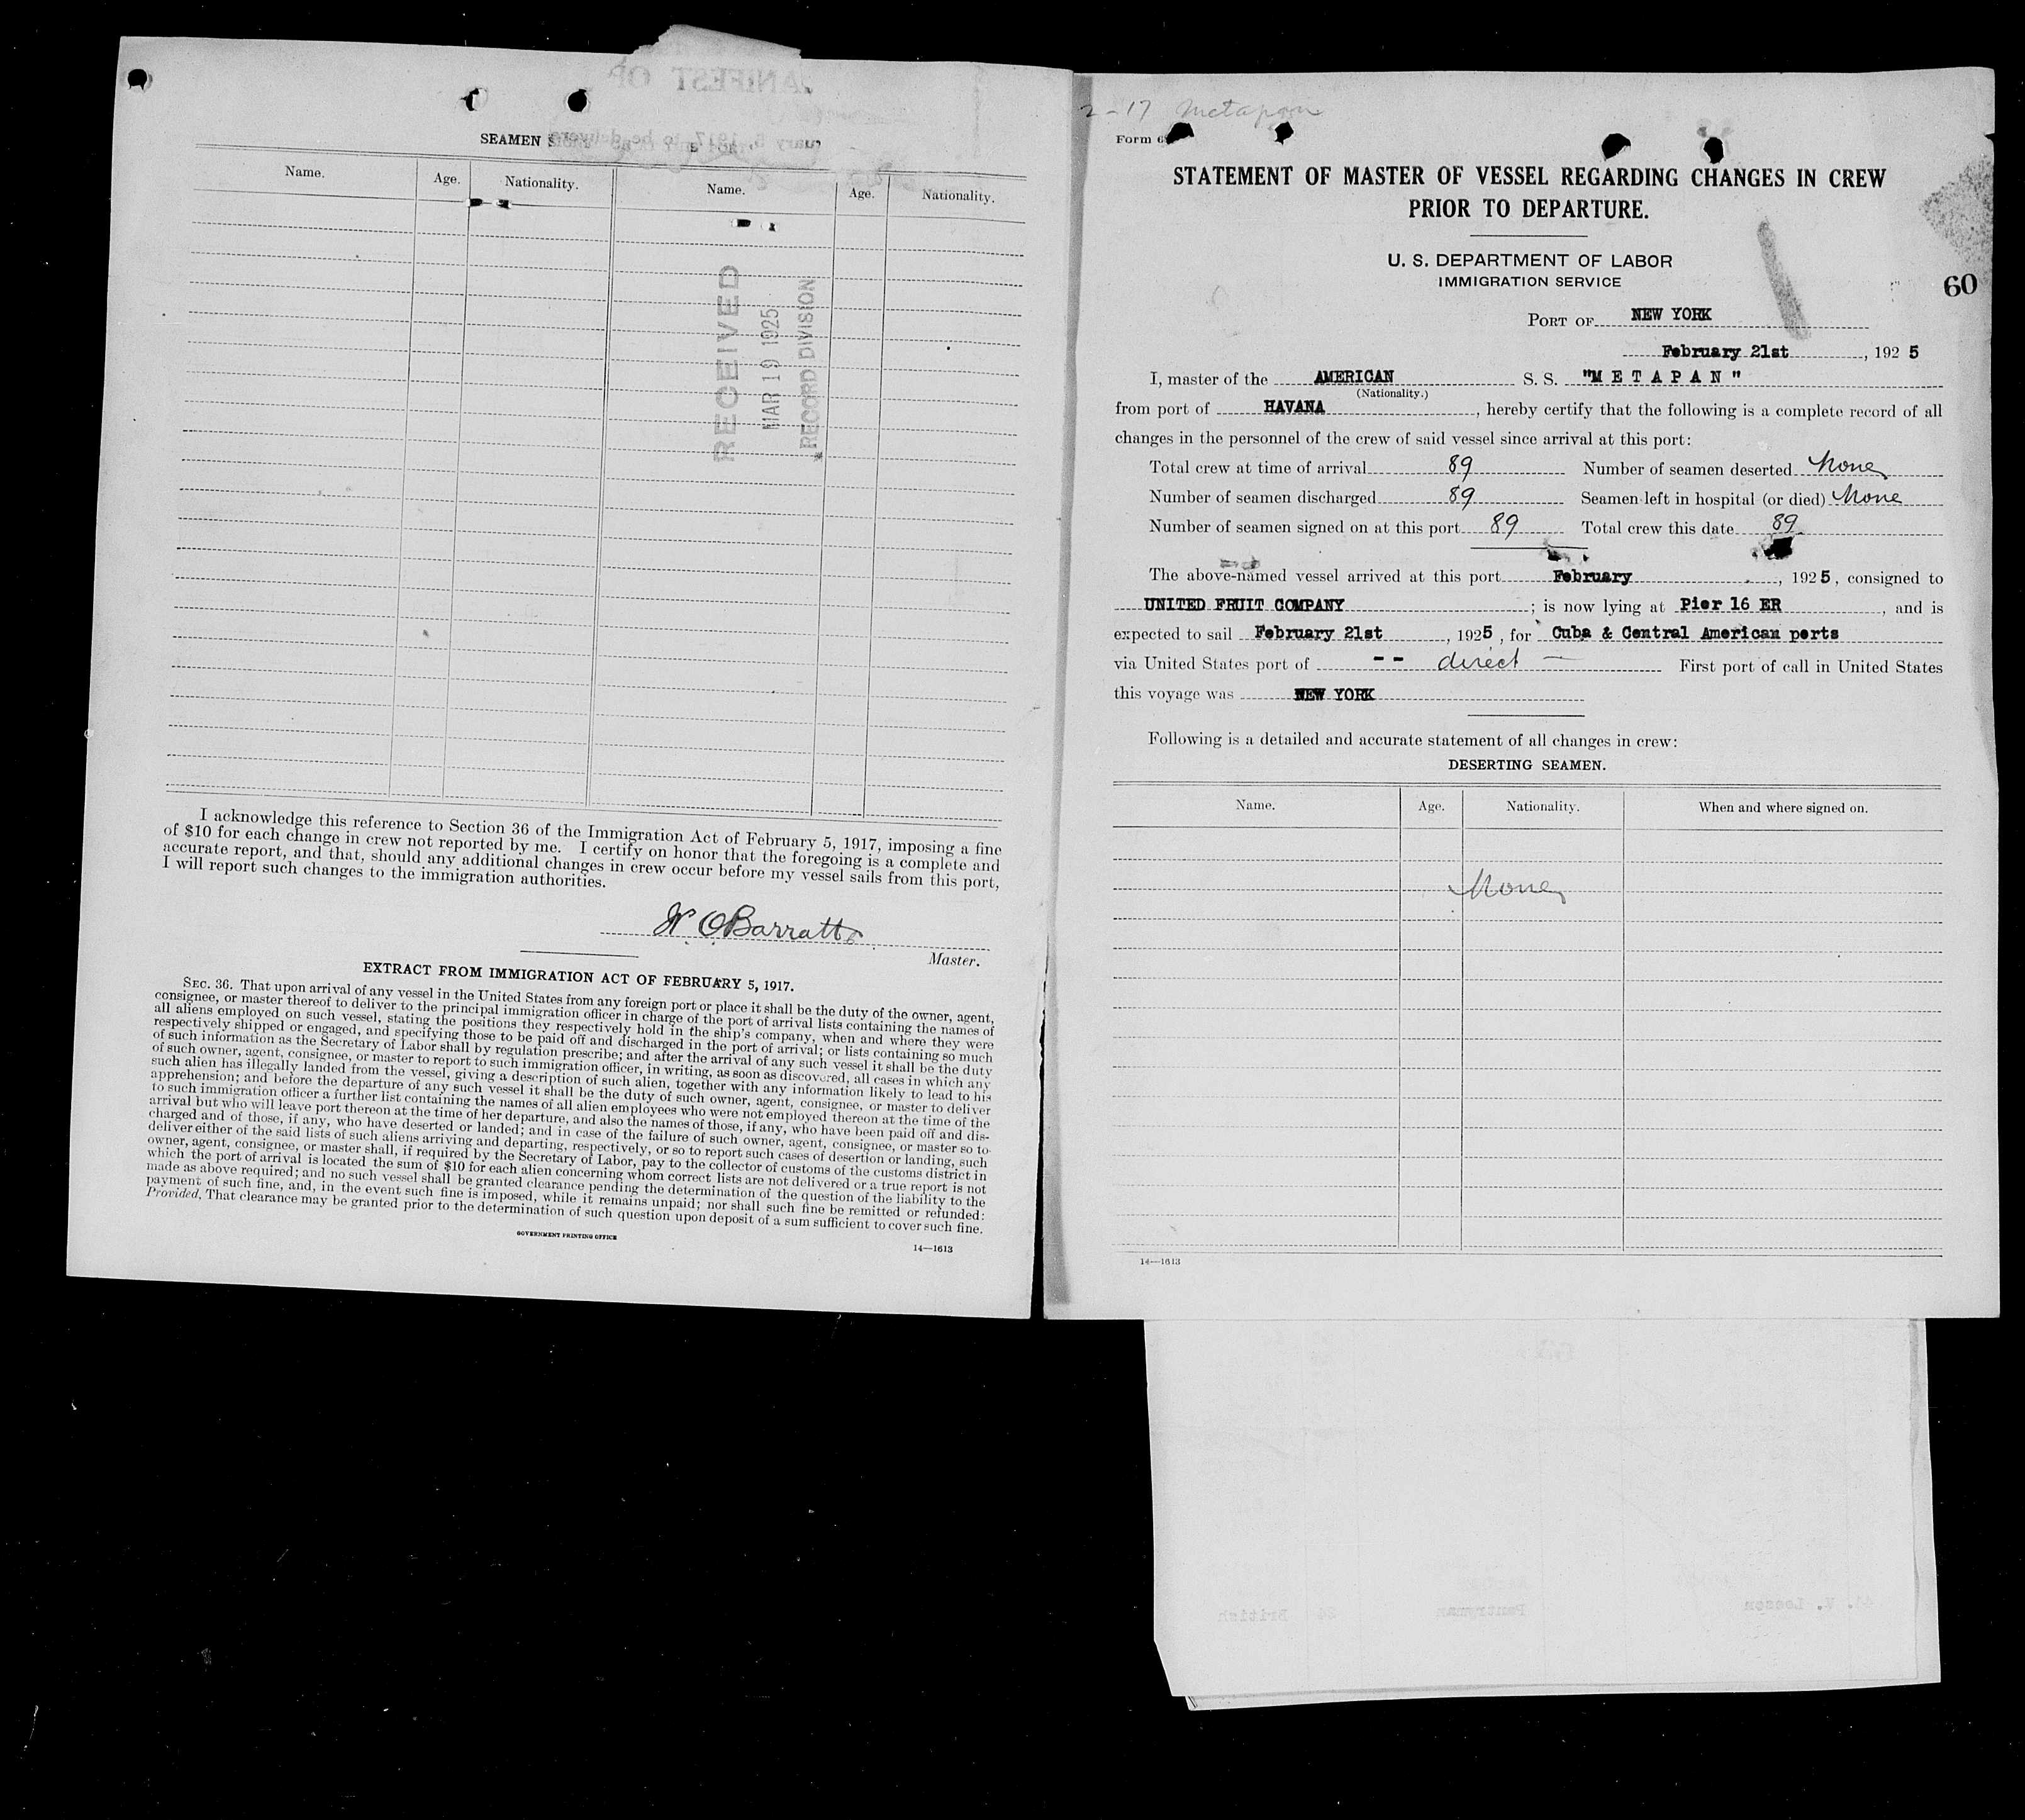 SEAMEN
Name. Age. Nationality. Name. Age. Nationality.
RECEIVED
MAR 19 1925
RECORD DIVISION
I acknowledge this reference to Section 36 of the Immigration Act of February 5, 1917, imposing a fine
of $10 for each change in crew not reported by me. I certify on honor that the foregoing is a complete and
accurate report, and that, should any additional changes in crew occur before my vessel sails from this port,
I will report such changes to the immigration authorities.
W. O. Barratt
Master.
EXTRACT FROM IMMIGRATION ACT OF FEBRUARY 5, 1917.
SEC. 36. That upon arrival of any vessel in the United States from any foreign port or place it shall be the duty of the owner, agent,
consignee, or master thereof to deliver to the principal immigration officer in charge of the port of arrival lists containing the names of
all aliens employed on such vessel, stating the positions they respectively hold in the ship's company, when and where they were
respectively shipped or engaged, and specifying those to be paid off and discharged in the port of arrival; or lists containing so much
of such information as the Secretary of Labor shall by regulation prescribe; and after the arrival of any such vessel it shall be the duty
of such owner, agent, consignee, or master to report to such immigration officer, in writing, as soon as discovered, all cases in which any
such alien has illegally landed from the vessel, giving a description of such alien, together with any information likely to lead to his
apprehension; and before the departure of any such vessel it shall be the duty of such owner, agent, consignee, or master to deliver
to such immigration officer a further list containing the names of all alien employees who were not employed thereon at the time of the
arrival but who will leave port thereon at the time of her departure, and also the names of those, if any, who have been paid off and dis-
charged and of those, if any, who have deserted or landed; and in case of the failure of such owner, agent, consignee, or master so to
deliver either of the said lists of such aliens arriving and departing, respectively, or so to report such cases of desertion or landing, such
owner, agent, consignee, or master shall, if required by the Secretary of Labor, pay to the collector of customs of the customs district in
which the port of arrival is located the sum of $10 for each alien concerning whom correct lists are not delivered or a true report is not
made as above required; and no such vessel shall be granted clearance pending the determination of the question of the liability to the
payment of such fine, and, in the event such fine is imposed, while it remains unpaid; nor shall such fine be remitted or refunded:
Provided, That clearance may be granted prior to the determination of such question upon deposit of a sum sufficient to cover such fine.
GOVERNMENT PRINTING OFFICE
14—1613
2-17 Metapan
Form 6
STATEMENT OF MASTER OF VESSEL REGARDING CHANGES IN CREW
PRIOR TO DEPARTURE.
U. S. DEPARTMENT OF LABOR
IMMIGRATION SERVICE
60
PORT OF NEW YORK
February 21st, 1925
I, master of the AMERICAN S. S. "METAPAN"
(Nationality.)
from port of HAVANA, hereby certify that the following is a complete record of all
changes in the personnel of the crew of said vessel since arrival at this port:
Total crew at time of arrival 89 Number of seamen deserted None
Number of seamen discharged 89 Seamen left in hospital (or died) None
Number of seamen signed on at this port 89 Total crew this date 89
The above-named vessel arrived at this port February, 1925, consigned to
UNITED FRUIT COMPANY; is now lying at Pier 16 ER, and is
expected to sail February 21st, 1925, for Cuba & Central American ports
via United States port of -- direct — First port of call in United States
this voyage was NEW YORK
Following is a detailed and accurate statement of all changes in crew:
DESERTING SEAMEN.
Name. Age. Nationality. When and where signed on.
None
14—1613